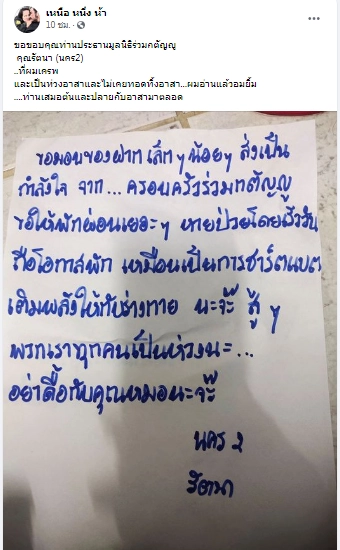 เหนือ หนึ่ง น้ำ
10 ชม.
ขอขอบคุณท่านประธานมูลนิธิร่วมกตัญญู
คุณรัตนา (นคร2)
..ที่ผมเครพ
และเป็นห่วงอาสาและไม่เคยทอดทิ้งอาสา...ผมอ่านแล้วอมยิ้ม
....ท่านเสมอต้นและปลายกับอาสามาตลอด
ขอมอบของฝาก เล็กๆ น้อยๆ ส่งเป็น
กำลังใจ จาก... ครอบครัวร่วมกตัญญู
ขอให้พักผ่อนเยอะๆ หายป่วยโดยเร็ววัน
ถือโอกาสพัก เหมือนเป็นการชาร์ตแบต
เติมพลังให้กับร่างกาย นะจ๊ะ สู้ ๆ
พวกเราทุกคนเป็นห่วงนะ...
อย่าดื้อกับคุณหมอนะจ๊ะ
นคร 2
รัตนา